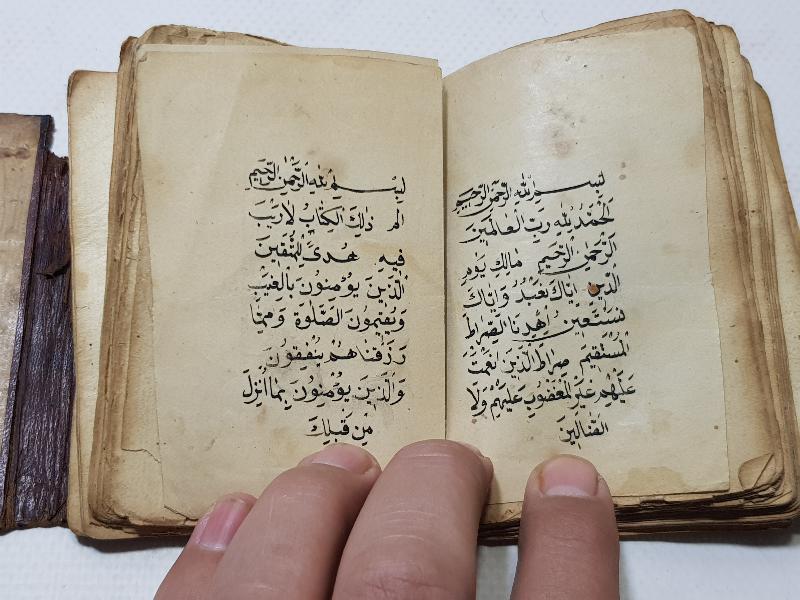 بِسْمِ اللهِ الرَّحْمٰنِ الرَّحِيمِ
اَلْحَمْدُ لِلّٰهِ رَبِّ الْعَالَمِينَ
الرَّحْمٰنِ الرَّحِيمِ مَالِكِ يَوْمِ
الدِّينِ اِيَّاكَ نَعْبُدُ وَاِيَّاكَ
نَسْتَعِينُ اِهْدِنَا الصِّرَاطَ
الْمُسْتَقِيمَ صِرَاطَ الَّذِينَ اَنْعَمْتَ
عَلَيْهِمْ غَيْرِ الْمَغْضُوبِ عَلَيْهِمْ وَلَا
الضَّالِّينَ
بِسْمِ اللهِ الرَّحْمٰنِ الرَّحِيمِ
الم ذٰلِكَ الْكِتَابُ لَارَيْبَ
فِيهِ هُدًى لِلْمُتَّقِينَ
اَلَّذِينَ يُؤْمِنُونَ بِالْغَيْبِ
وَيُقِيمُونَ الصَّلٰوةَ وَمِمَّا
رَزَقْنَاهُمْ يُنْفِقُونَ
وَالَّذِينَ يُؤْمِنُونَ بِمَا اُنْزِلَ
مِنْ قَبْلِكَ